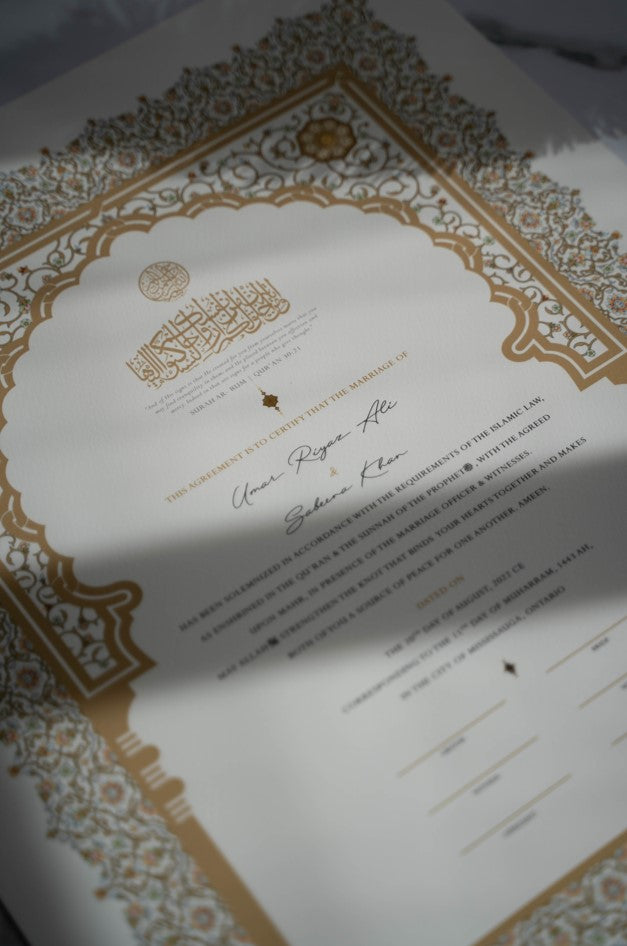 "And of His signs is that He created for you from yourselves mates that you
may find tranquility in them; and He placed between you affection and
mercy. Indeed in that are signs for a people who give thought."
SURAH AR- RUM | QUR'AN 30:21
THIS AGREEMENT IS TO CERTIFY THAT THE MARRIAGE OF
Umar Riyaz Ali
&
Sabeena Khan
HAS BEEN SOLEMNIZED IN ACCORDANCE WITH THE REQUIREMENTS OF THE ISLAMIC LAW,
AS ENSHRINED IN THE QU'RAN & THE SUNNAH OF THE PROPHET ﷺ, WITH THE AGREED
UPON MAHR, IN PRESENCE OF THE MARRIAGE OFFICER & WITNESSES.
MAY ALLAH STRENGTHEN THE KNOT THAT BINDS YOUR HEARTS TOGETHER AND MAKES
BOTH OF YOU A SOURCE OF PEACE FOR ONE ANOTHER. AMEEN.
DATED ON
THE 20TH DAY OF AUGUST, 2021 CE
CORRESPONDING TO THE 11TH DAY OF MUHARRAM, 1443 AH,
IN THE CITY OF MISSISSAUGA, ONTARIO